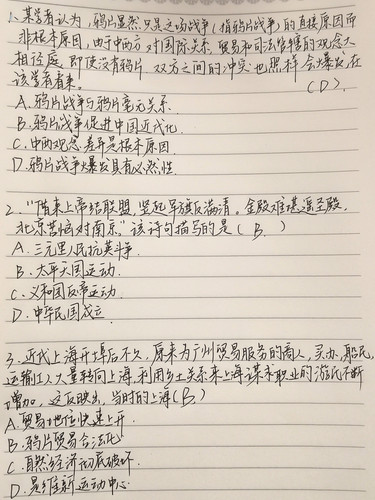 1. 某学者认为，鸦片显然只是这场战争（指鸦片战争）的直接原因而
非根本原因，由于中西方对国际关系、贸易和司法管辖的观念大
相径庭，即使没有鸦片，双方之间的冲突也照样会爆发，在
该学者看来，（D）.
A. 鸦片战争与鸦片毫无关系.
B. 鸦片战争促进中国近代化.
C. 中西观念差异是根本原因.
D. 鸦片战争爆发具有必然性.
2. "借来上帝结联盟，竖起军旗反满清。金殿难堪遥圣殿，
北京苦恼对南京。"该诗句描写的是（B.）
A. 三元里人民抗英斗争.
B. 太平天国运动.
C. 义和团反帝运动
D. 中华民国成立.
3. 近代上海开埠后不久，原来为广州贸易服务的商人，买办，船民，
运输工人大量转向上海，利用乡土关系来上海谋求职业的游民不断
增加，这反映出，当时的上海（B.）
A. 贸易地位快速上升.
B. 鸦片贸易合法化
C. 自然经济彻底破坏.
D. 是维新运动中心